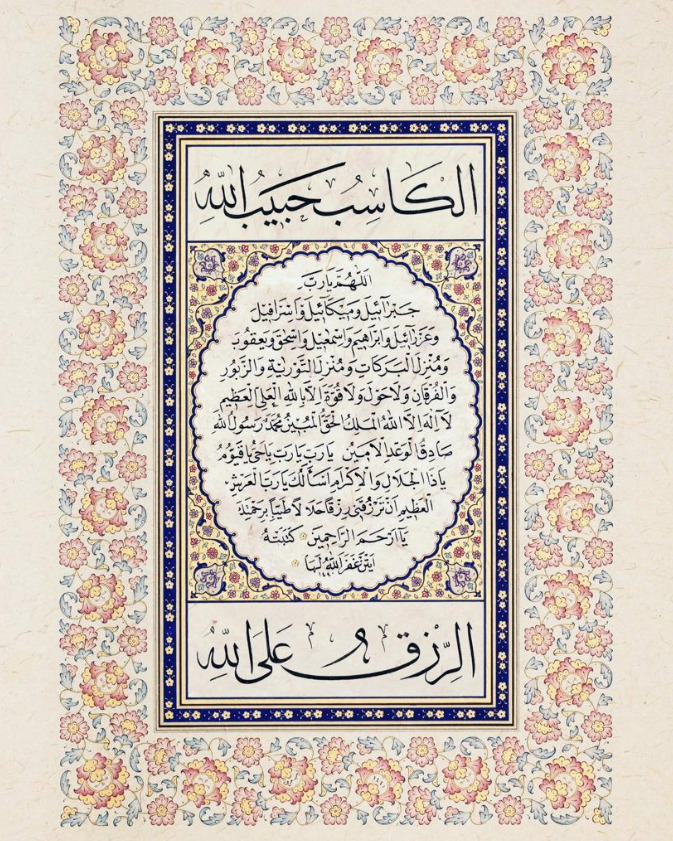 الكَاسِبُ حَبِيبُ اللّٰهِ
اَللّٰهُمَّ يَارَبَّ
جَبْرَآئِيلَ وَمِيكَائِيلَ وَاِسْرَافِيلَ
وَعَزْرَآئِيلَ وَاِبْرَاهِيمَ وَاِسْمٰعِيلَ وَاِسْحٰقَ وَيَعْقُوبَ
وَمُنْزِلَ الْبَرَكَاتِ وَمُنْزِلَ التَّوْرٰيةِ وَالزَّبُورِ
وَالْفُرْقَانِ وَلَاحَوْلَ وَلَاقُوَّةَ اِلَّا بِاللّٰهِ الْعَلِيِّ الْعَظِيمِ
لَآاِلٰهَ اِلَّا اللّٰهُ الْمَلِكُ الْحَقُّ الْمُبِينُ مُحَمَّدٌ رَسُولُ اللّٰهِ
صَادِقُ الْوَعْدِ الْاَمِينِ يَارَبِّ يَارَبِّ يَاحَيُّ يَاقَيُّومُ
يَاذَا الْجَلَالِ وَالْاِكْرَامِ اَسْأَلُكَ يَارَبَّ الْعَرْشِ
الْعَظِيمِ اَنْ تَرْزُقَنِي رِزْقًا حَلَالًا طَيِّبًا بِرَحْمَتِكَ
يَآاَرْحَمَ الرَّاحِمِينَ كَتَبَتْهُ
غَفَرَ اللّٰهُ لَهَا
الرِّزْقُ عَلَى اللّٰهِ